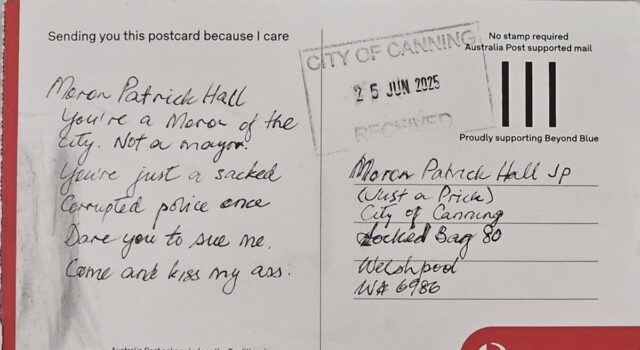 Sending you this postcard because I care
Moron Patrick Hall
You're a Moron of the
city. Not a mayor.
You're just a sacked
Corrupted police once
Dare you to sue me.
Come and kiss my ass.
CITY OF CANNING
25 JUN 2025
RECEIVED
No stamp required
Australia Post supported mail
Proudly supporting Beyond Blue
Moron Patrick Hall JP
(Just a Prick)
City of Canning
Locked Bag 80
Welshpool
WA 6986